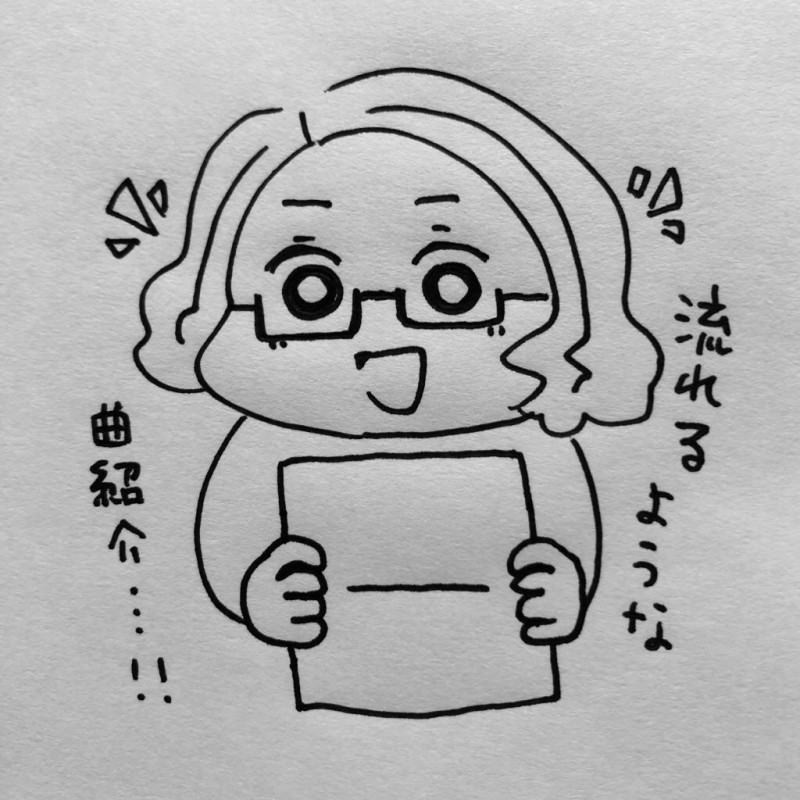 流れる
ような
曲紹介…!!